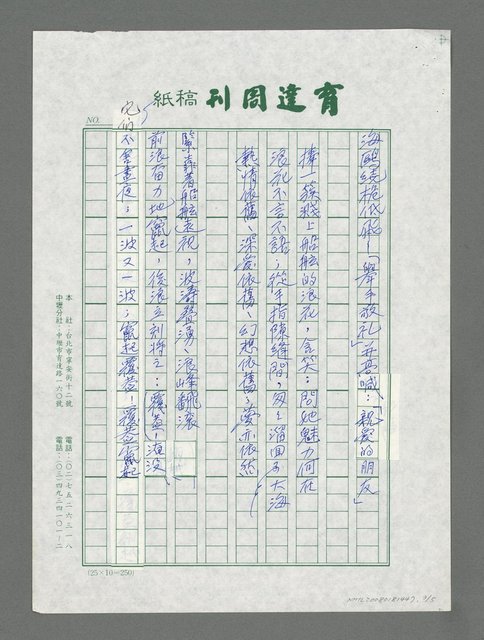 育達周刊 稿紙
NO.
海鷗繞桅低飛!「舉手敬礼」并高喊:「親愛的朋友」
捧一簇濺上船舷的浪花,含笑:問她魅力何在
浪花不言不語;從手指隙縫間,匆匆溜回了大海
熱情依舊、深愛依舊、幻想依舊;愛亦依然
緊靠着船舷
視,波濤
湧、浪峰翻滾
前浪奮力地竄起,後浪立刻將之:覆蓋!淹没
它們不舍晝夜;一波又一波;竄起覆蓋!覆蓋竄起
本 社:台北市寧安街十二號 電話:〇二-七五二六三一八
中壢分社:中壢市育達路一六〇號 電話:〇三-四九三四一〇一-二
(25×10=250)
NMTL20080181447, 3/5